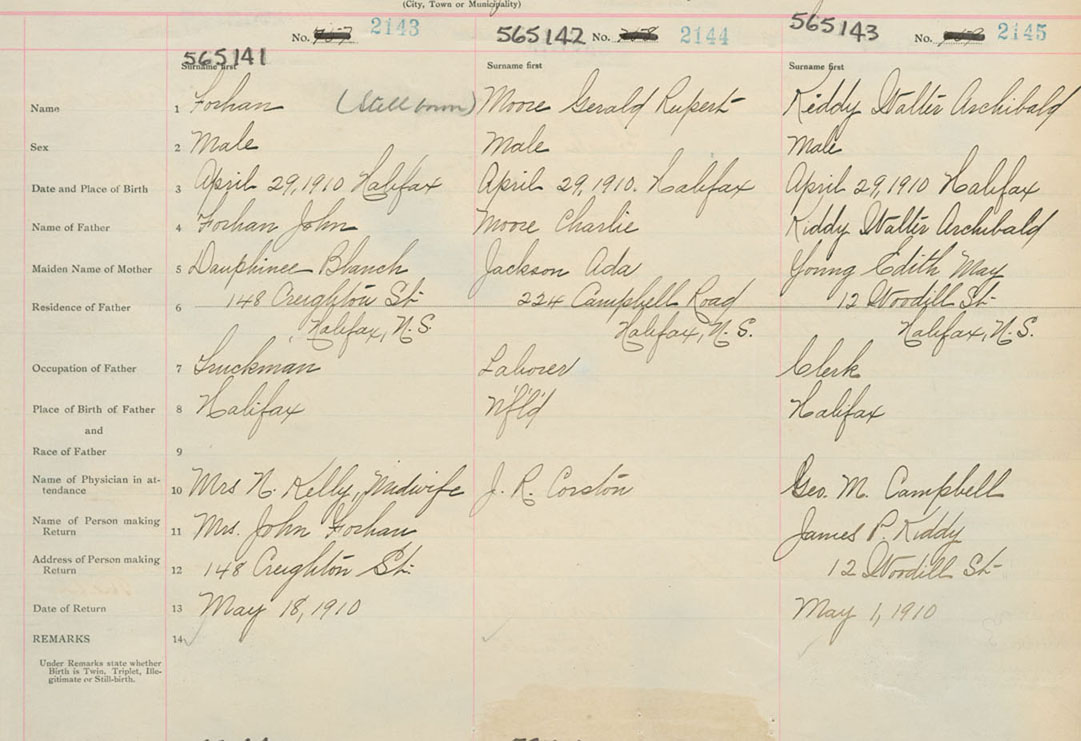 (City, Town or Municipality)
No. 2143 565142 No. 2144 565143 No. 2145
565141
Surname first Surname first Surname first
Name 1 Forhan (Still born) Moore Gerald Rupert Kiddy Walter Archibald
Sex 2 Male Male Male
Date and Place of Birth 3 April 29, 1910 Halifax April 29, 1910. Halifax April 29, 1910 Halifax
Name of Father 4 Forhan John Moore Charlie Kiddy Walter Archibald
Maiden Name of Mother 5 Dauphinee Blanch Jackson Ada Young Edith May
Residence of Father 6 148 Creighton St. 224 Campbell Road 12 Woodill St.
Halifax, N.S. Halifax, N.S. Halifax, N.S.
Occupation of Father 7 Truckman Laborer Clerk
Place of Birth of Father 8 Halifax Nf'l'd Halifax
and
Race of Father 9
Name of Physician in at-
tendance 10 Mrs N. Kelly, Midwife J. R. Corston Geo. M. Campbell
Name of Person making
Return 11 Mrs. John Forhan James P. Kiddy
Address of Person making
Return 12 148 Creighton St. 12 Woodill St.
Date of Return 13 May 18, 1910 May 1, 1910
REMARKS 14
Under Remarks state whether
Birth is Twin, Triplet, Ille-
gitimate or Still-birth.